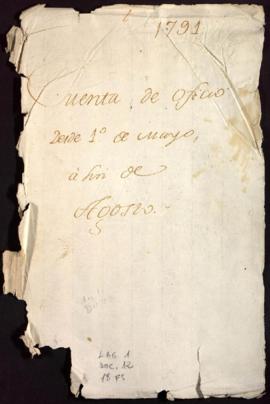 1791
Cuenta de oficio
Desde 1º de Mayo,
à fin de
Agosto.
LEG. 1
DOC. 12
18 fs